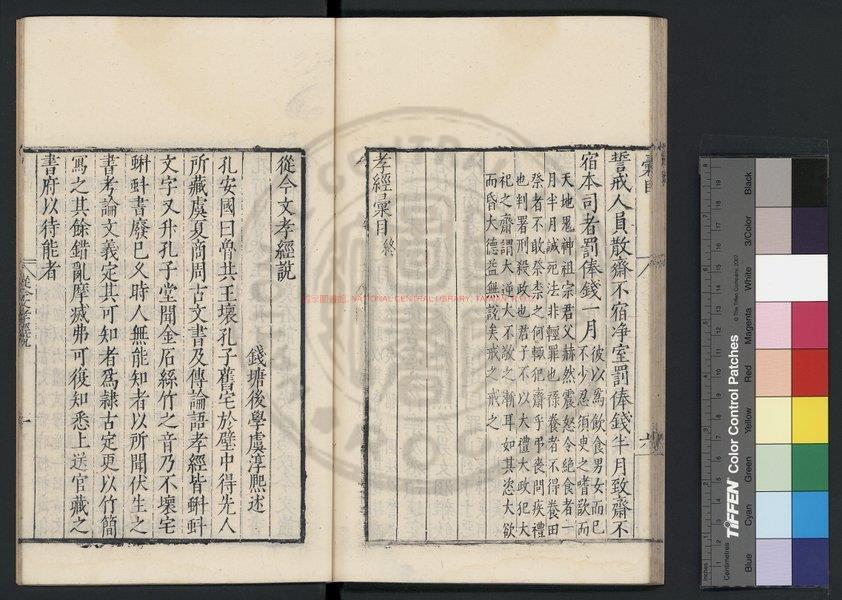 誓戒人員散齋不宿净室罰俸錢半月致齋不
宿本司者罰俸錢一月
彼以爲飲食男女而巳
不少忍須臾之嗜歆而
天地鬼神祖宗君父赫然震怒令絶食者一
月半月誠死法非輕罪也祿養者不得養田
祭者不敢祭柰之何輒犯齋乎弔丧問疾禮
也判署刑殺政也君子不以大禮大政犯大
祀之齋謂大逆大不敬之漸耳如其恣大欲
而昏大德益無說矣戒之戒之
孝經彙目終
從今文孝經說
錢塘後學虞淳熙述
孔安國曰魯共王壞孔子舊宅於壁中得先人
所藏虞夏商周古文書及傳論語孝經皆蝌蚪
文字又升孔子堂聞金石絲竹之音乃不壞宅
蝌蚪書廢巳久時人無能知者以所聞伏生之
書考論文義定其可知者爲隸古定更以竹簡
寫之其餘錯亂摩滅弗可復知悉上送官藏之
書府以待能者
從今文孝經說
一
國家圖書館, NATIONAL CENTRAL LIBRARY, TAIWAN, R.O.C.
TIFFEN Color Control Patches
© The Tiffen Company, 2007
Inches
Centimetres
Blue
Cyan
Green
Yellow
Red
Magenta
White
3/Color
Black